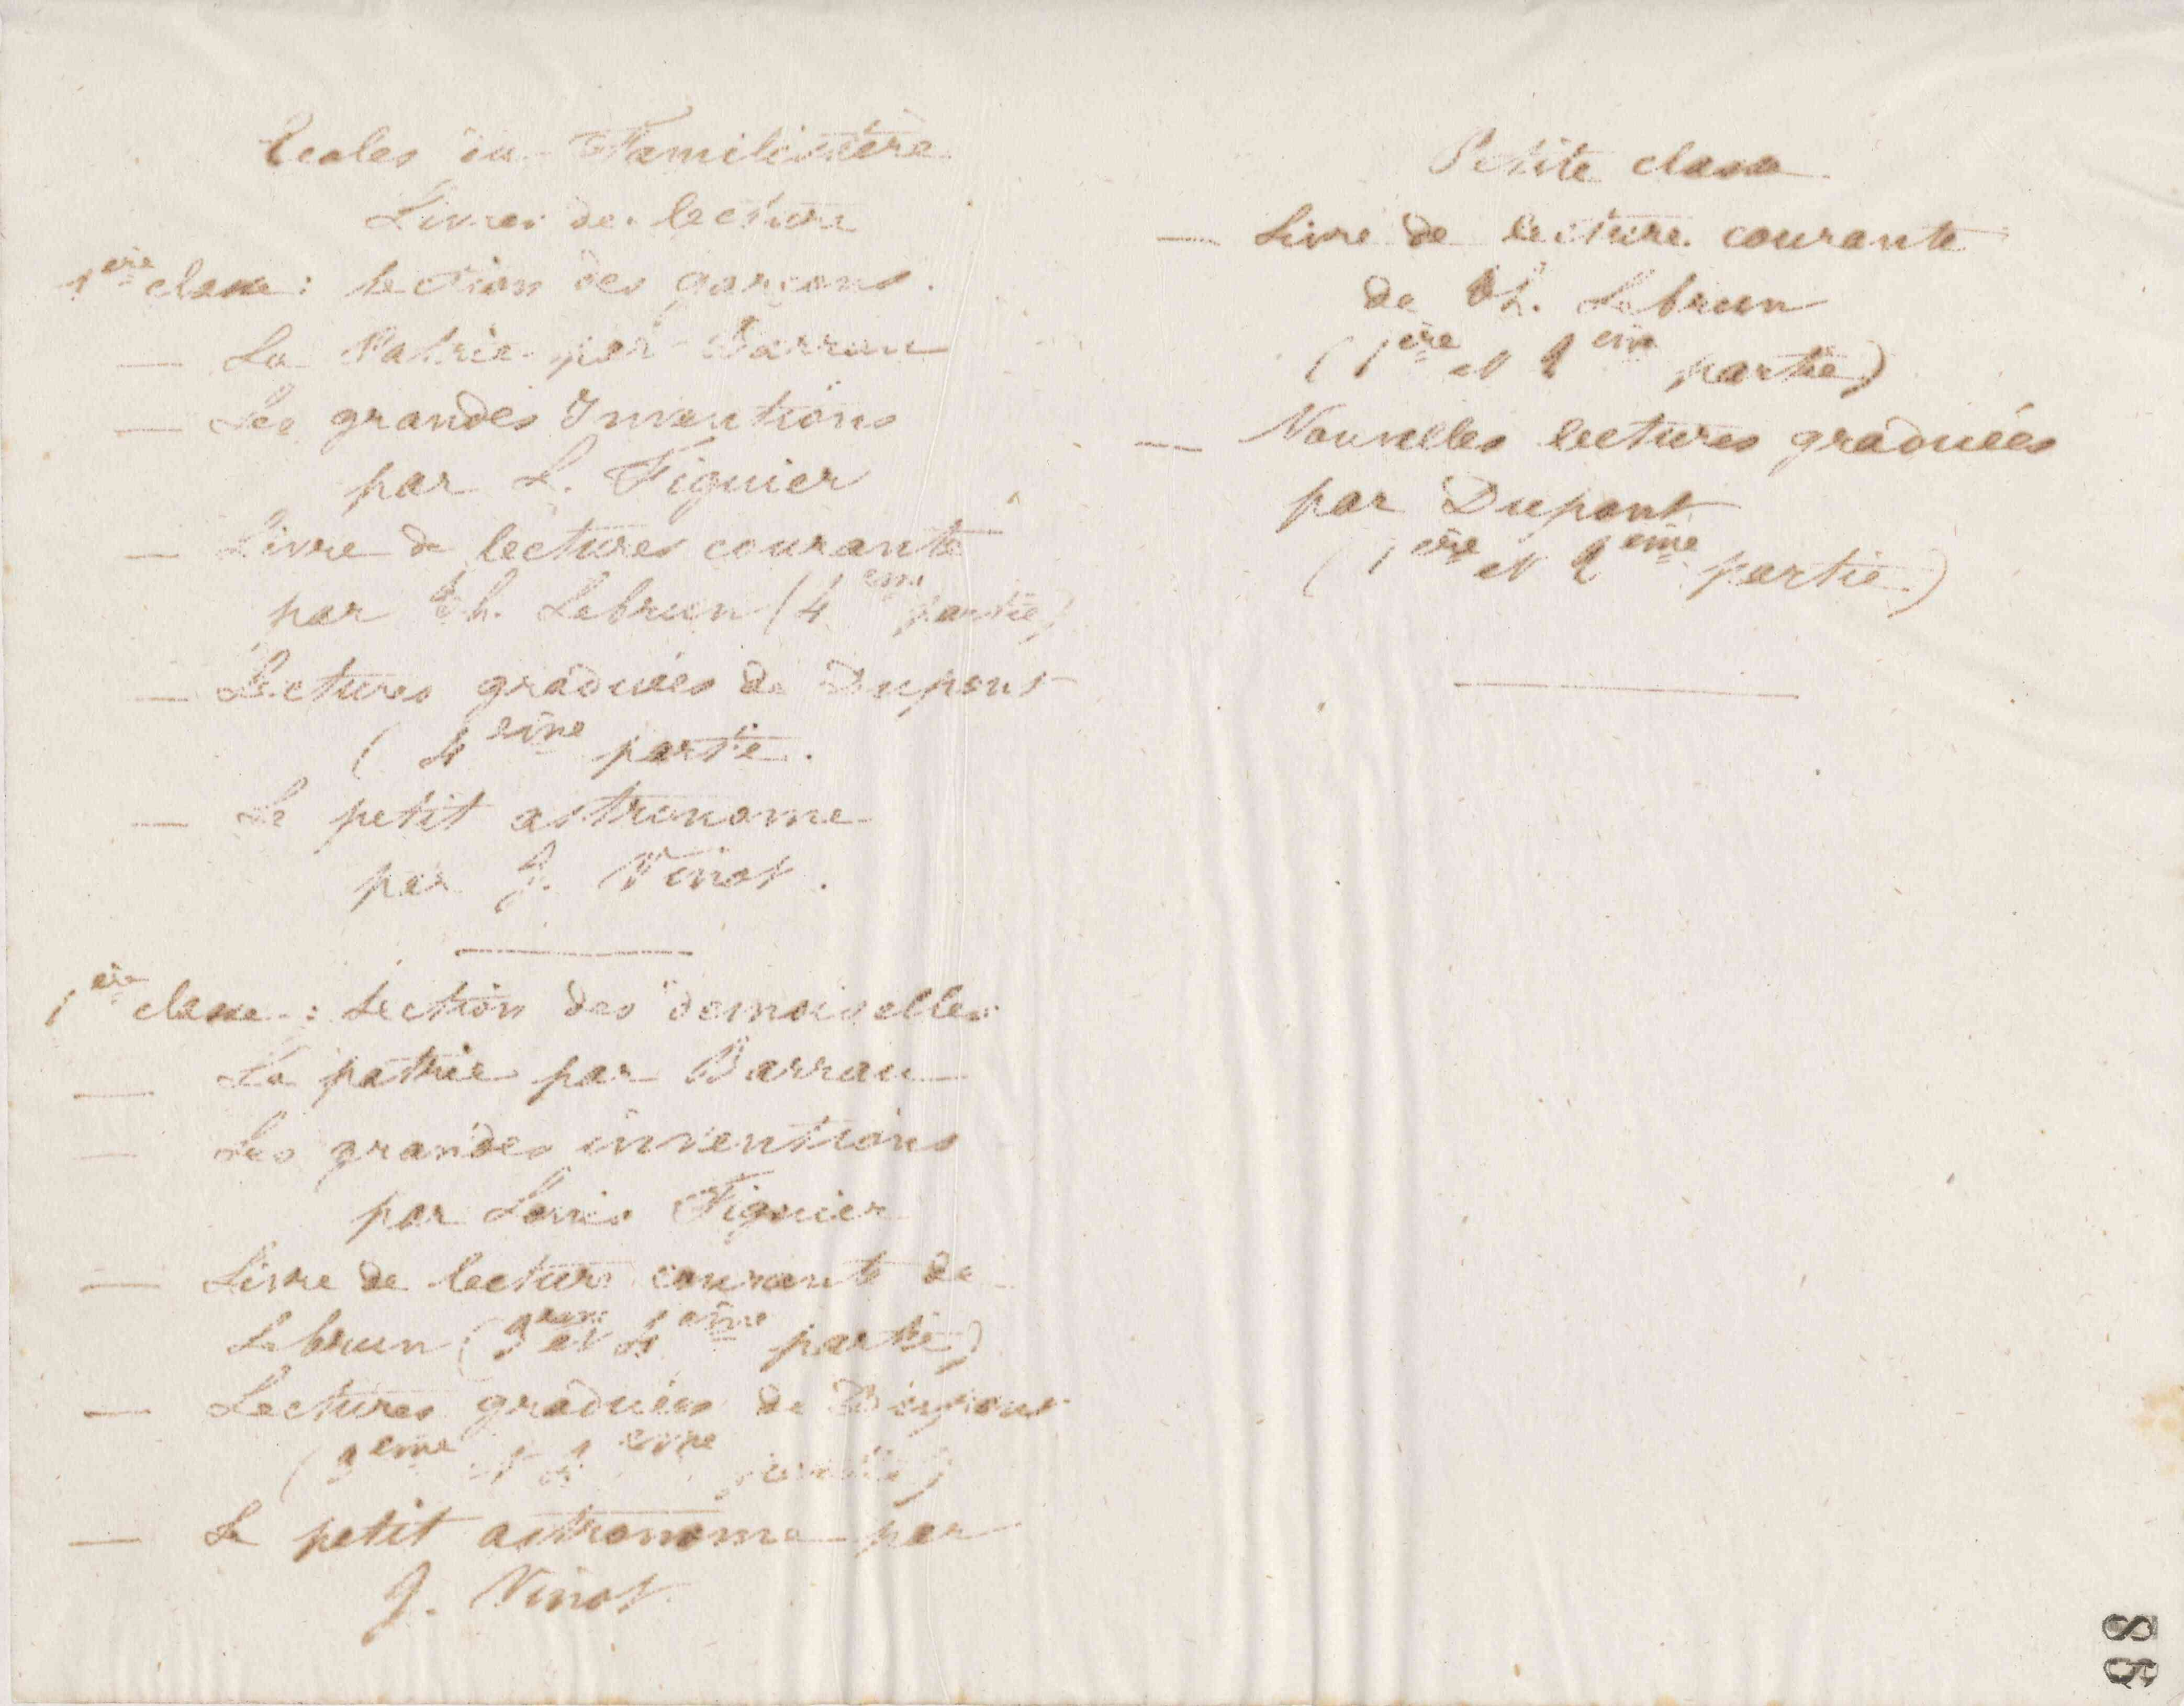 Ecoles du Familistère
Livres de lecture
1ère classe : Section des garçons.
— La Patrie par Barrau
— Les grandes Inventions
par L. Figuier
— Livre de lectures courante
par Th. Lebrun (4eme partie)
— Lectures graduées de Dupont
( 4eme partie.
— Le petit astronome
par J. Vinot.
1ère classe : Section des demoiselles
— La patrie par Barrau
— Les grandes inventions
par Louis Figuier
— Livre de lecture courante de
Lebrun (3eme et 4eme partie)
— Lectures graduées de Dupont
(3eme et 4eme partie)
— Le petit astronome par
J. Vinot
Petite classe
— Livre de lecture courante
de Th. Lebrun
(1ère et 2eme partie)
— Nouvelles lectures graduées
par Dupont
(1ère et 2eme partie)
88